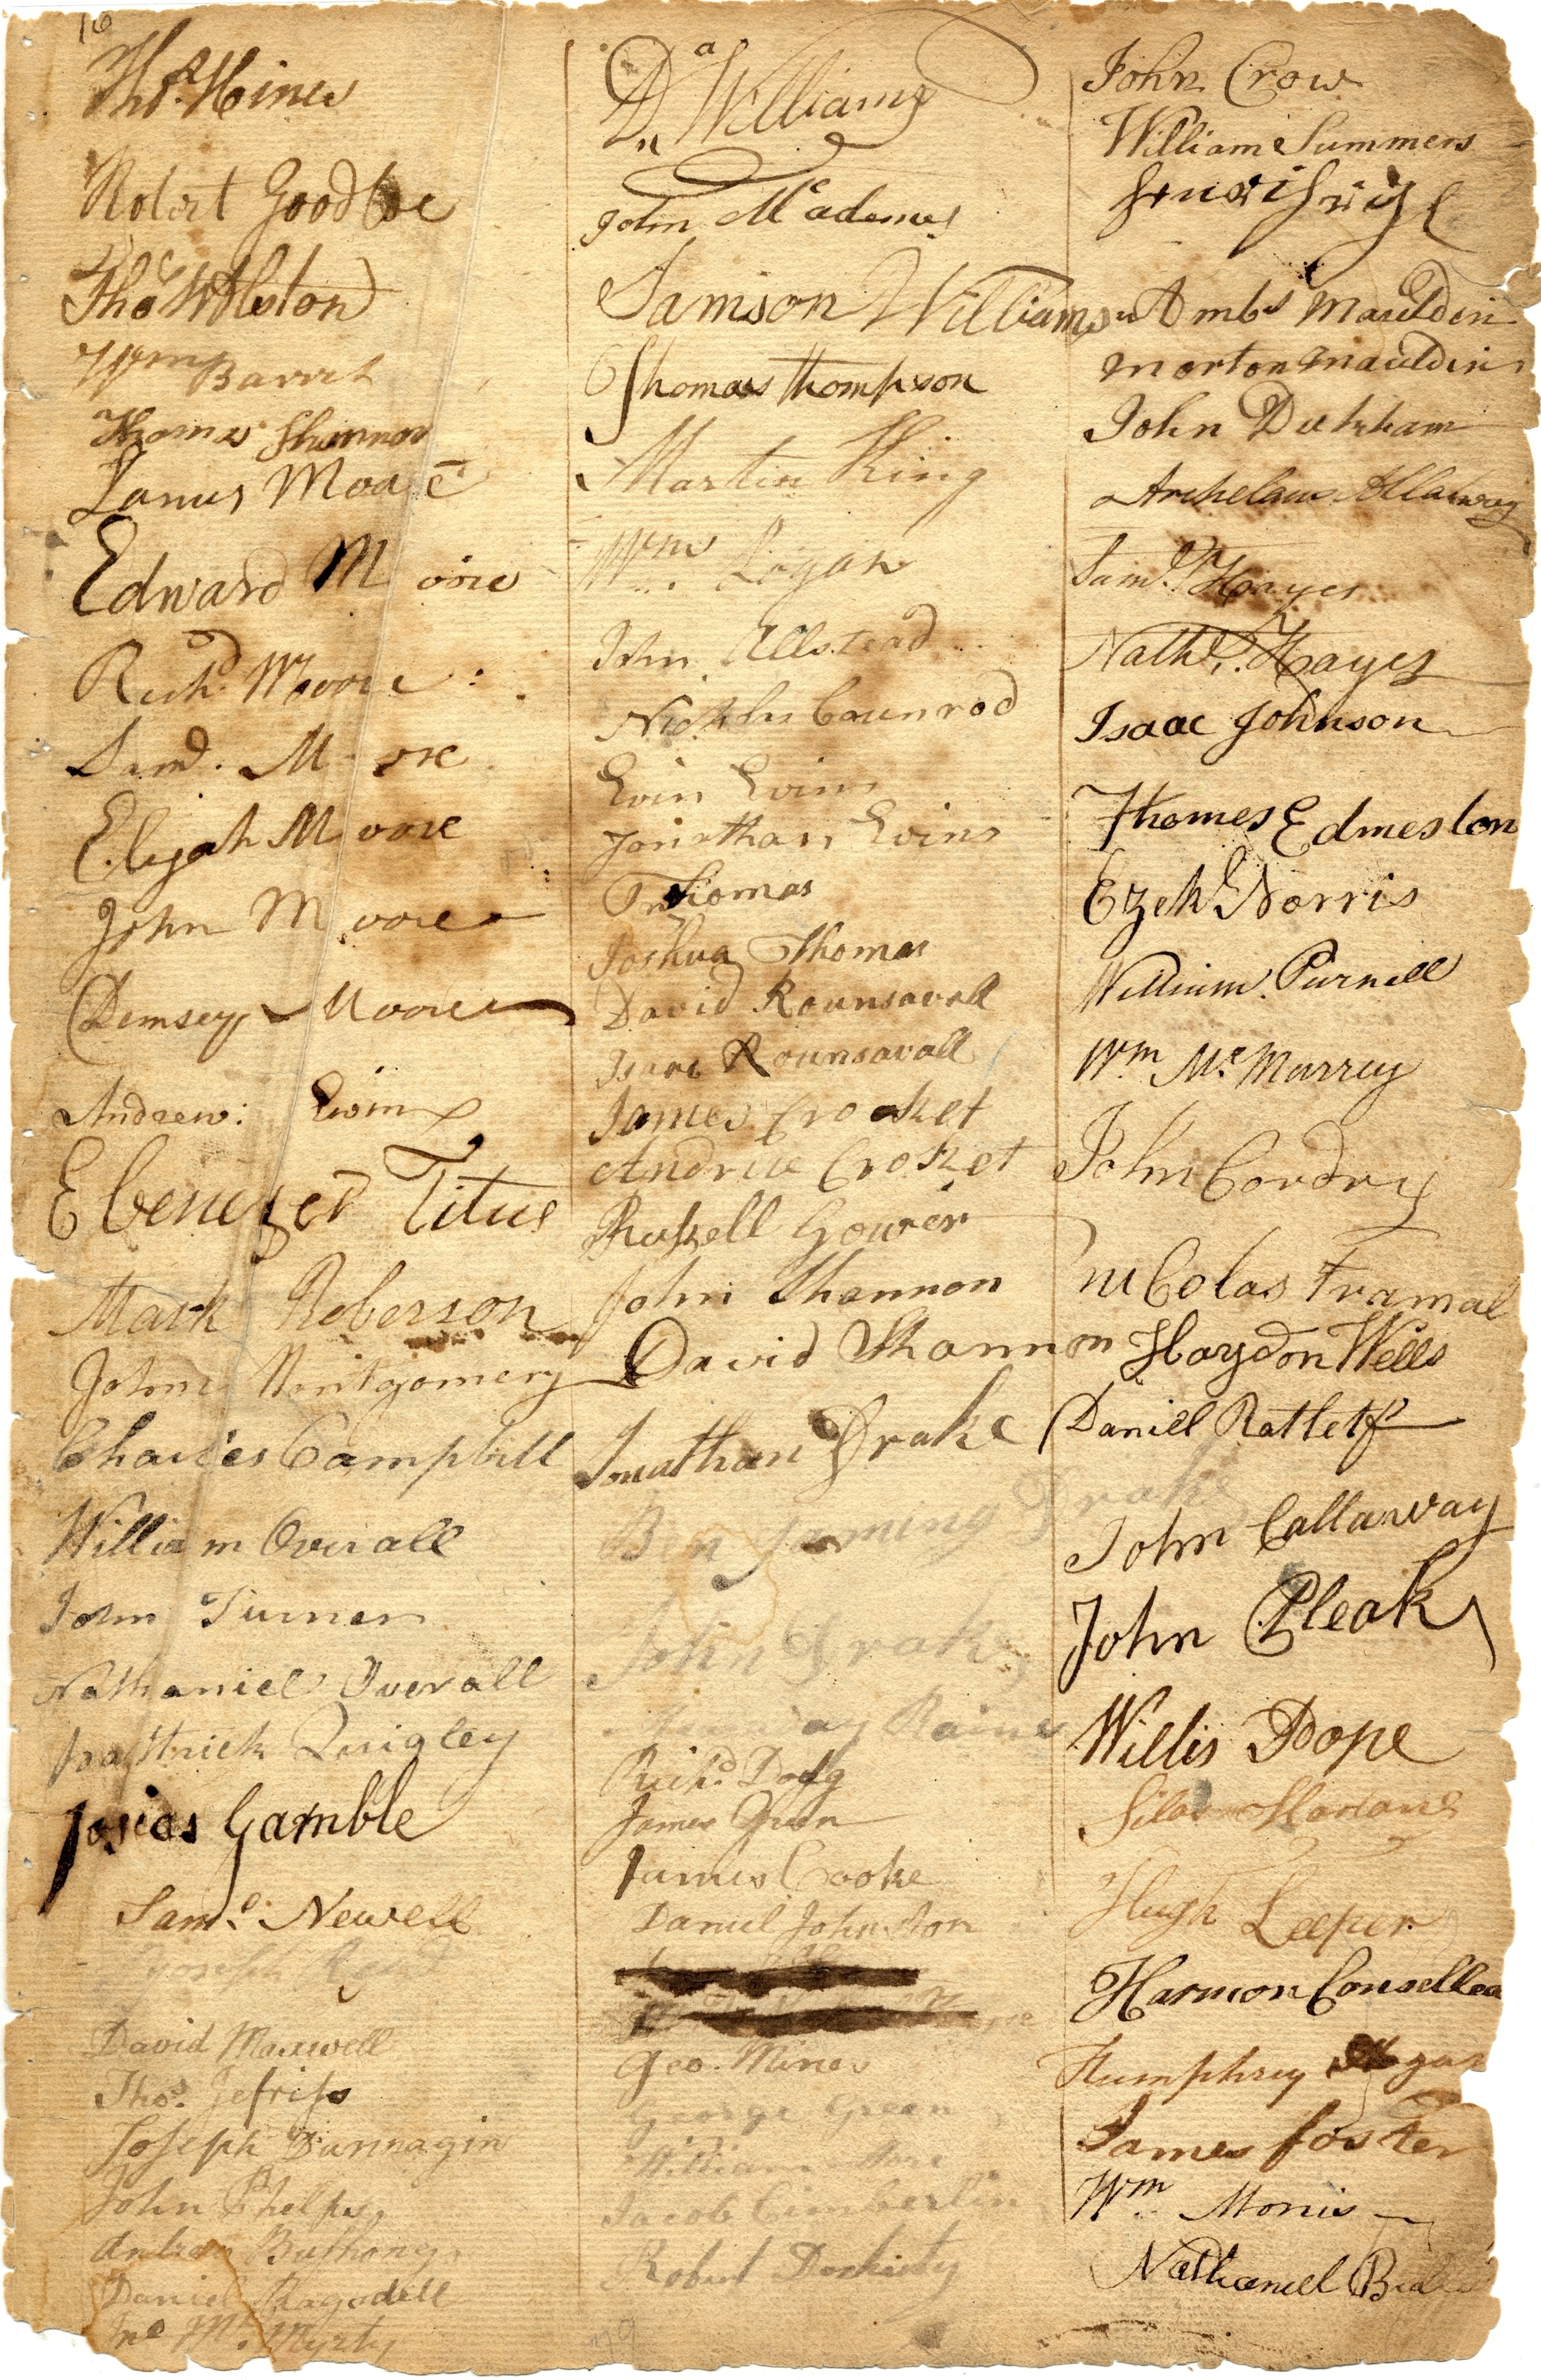 16
Thos. Hines
Robert Goodloe
Thos. W Alston
Wm Barret
Thomas Shannon
Lanus Moore
Edward Moore
Richd. Moore
Saml. Moore
Elijah Moore
John Moore
Demsey Moore
Andrew: Ewin
Ebenezer Titus
Mark Roberson
John Montgomery
Charles Campbill
William Overall
John Turner
Nathaniel Overall
pattrick Quigley
Josias Gamble
Saml. Newell
Joseph
David Maxwell
Thos. Jefriss
Joseph Dunnagin
John Phelps
Andrew Bushong
Daniel Ragsdell
Jno Mc. Myrty
Da Williams
John Mcadames
Samson Williams
Thomas Thompson
Martin King
Wm. Logan
John Allstead
Nicklus Counrod
Evin Evins
Jonathan Evins
Jn Thomas
Joshua Thomas
David Rounsavall
Isaac Rounsavall
James Crocket
Andrue Croket
Russell Gower
John Shannon
David Shannon
Jonathan Drake
Benjaming Drake
John Drake
Raines
Richd. Dodg
James Green
James Cooke
Daniel Johnston
Geo. Mines
George Green
William More
Jacob Cimberlin
Robert Doherty
79
John Crow
William Summers
Ambs Mauldin
morton mauldin
John Duckham
Archelaus Allaway
Saml. Hayes
Nathl. Hayes
Isaac Johnson
Thomes Edmeston
Ezekl Norris
William. Purnell
Wm Mc. Murrey
John Cordry
niColas Framal
Haydon Wells
Daniel Ratletf
John Callaway
John Pleak
Willis Pope
Silas Harlane
Hugh Leeper
Harmon Consellea
Humphrey Hogan
James foster
Wm. Morris
Nathaniel